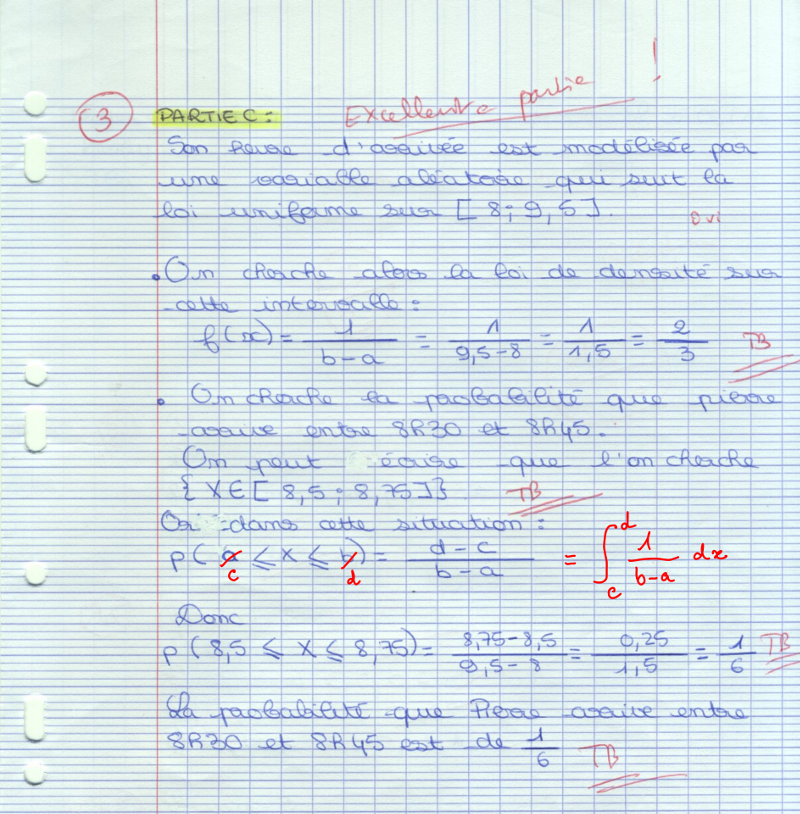 3 PARTIE C : Excellente partie !
Son heure d'arrivée est modélisée par
une variable aléatoire qui suit la
loi uniforme sur [8 ; 9,5]. Oui
• On cherche alors la loi de densité sur
cette intervalle :
f(x) = 1/(b-a) = 1/(9,5-8) = 1/1,5 = 2/3 TB
• On cherche la probabilité que pierre
arrive entre 8h30 et 8h45.
On peut écrire que l'on cherche
{X ∈ [8,5 ; 8,75]} TB
Or dans cette situation :
p(a ≤ X ≤ b) = (d-c)/(b-a) = ∫_c^d 1/(b-a) dx
c d
Donc
p(8,5 ≤ X ≤ 8,75) = (8,75-8,5)/(9,5-8) = 0,25/1,5 = 1/6 TB
La probabilité que Pierre arrive entre
8h30 et 8h45 est de 1/6 TB